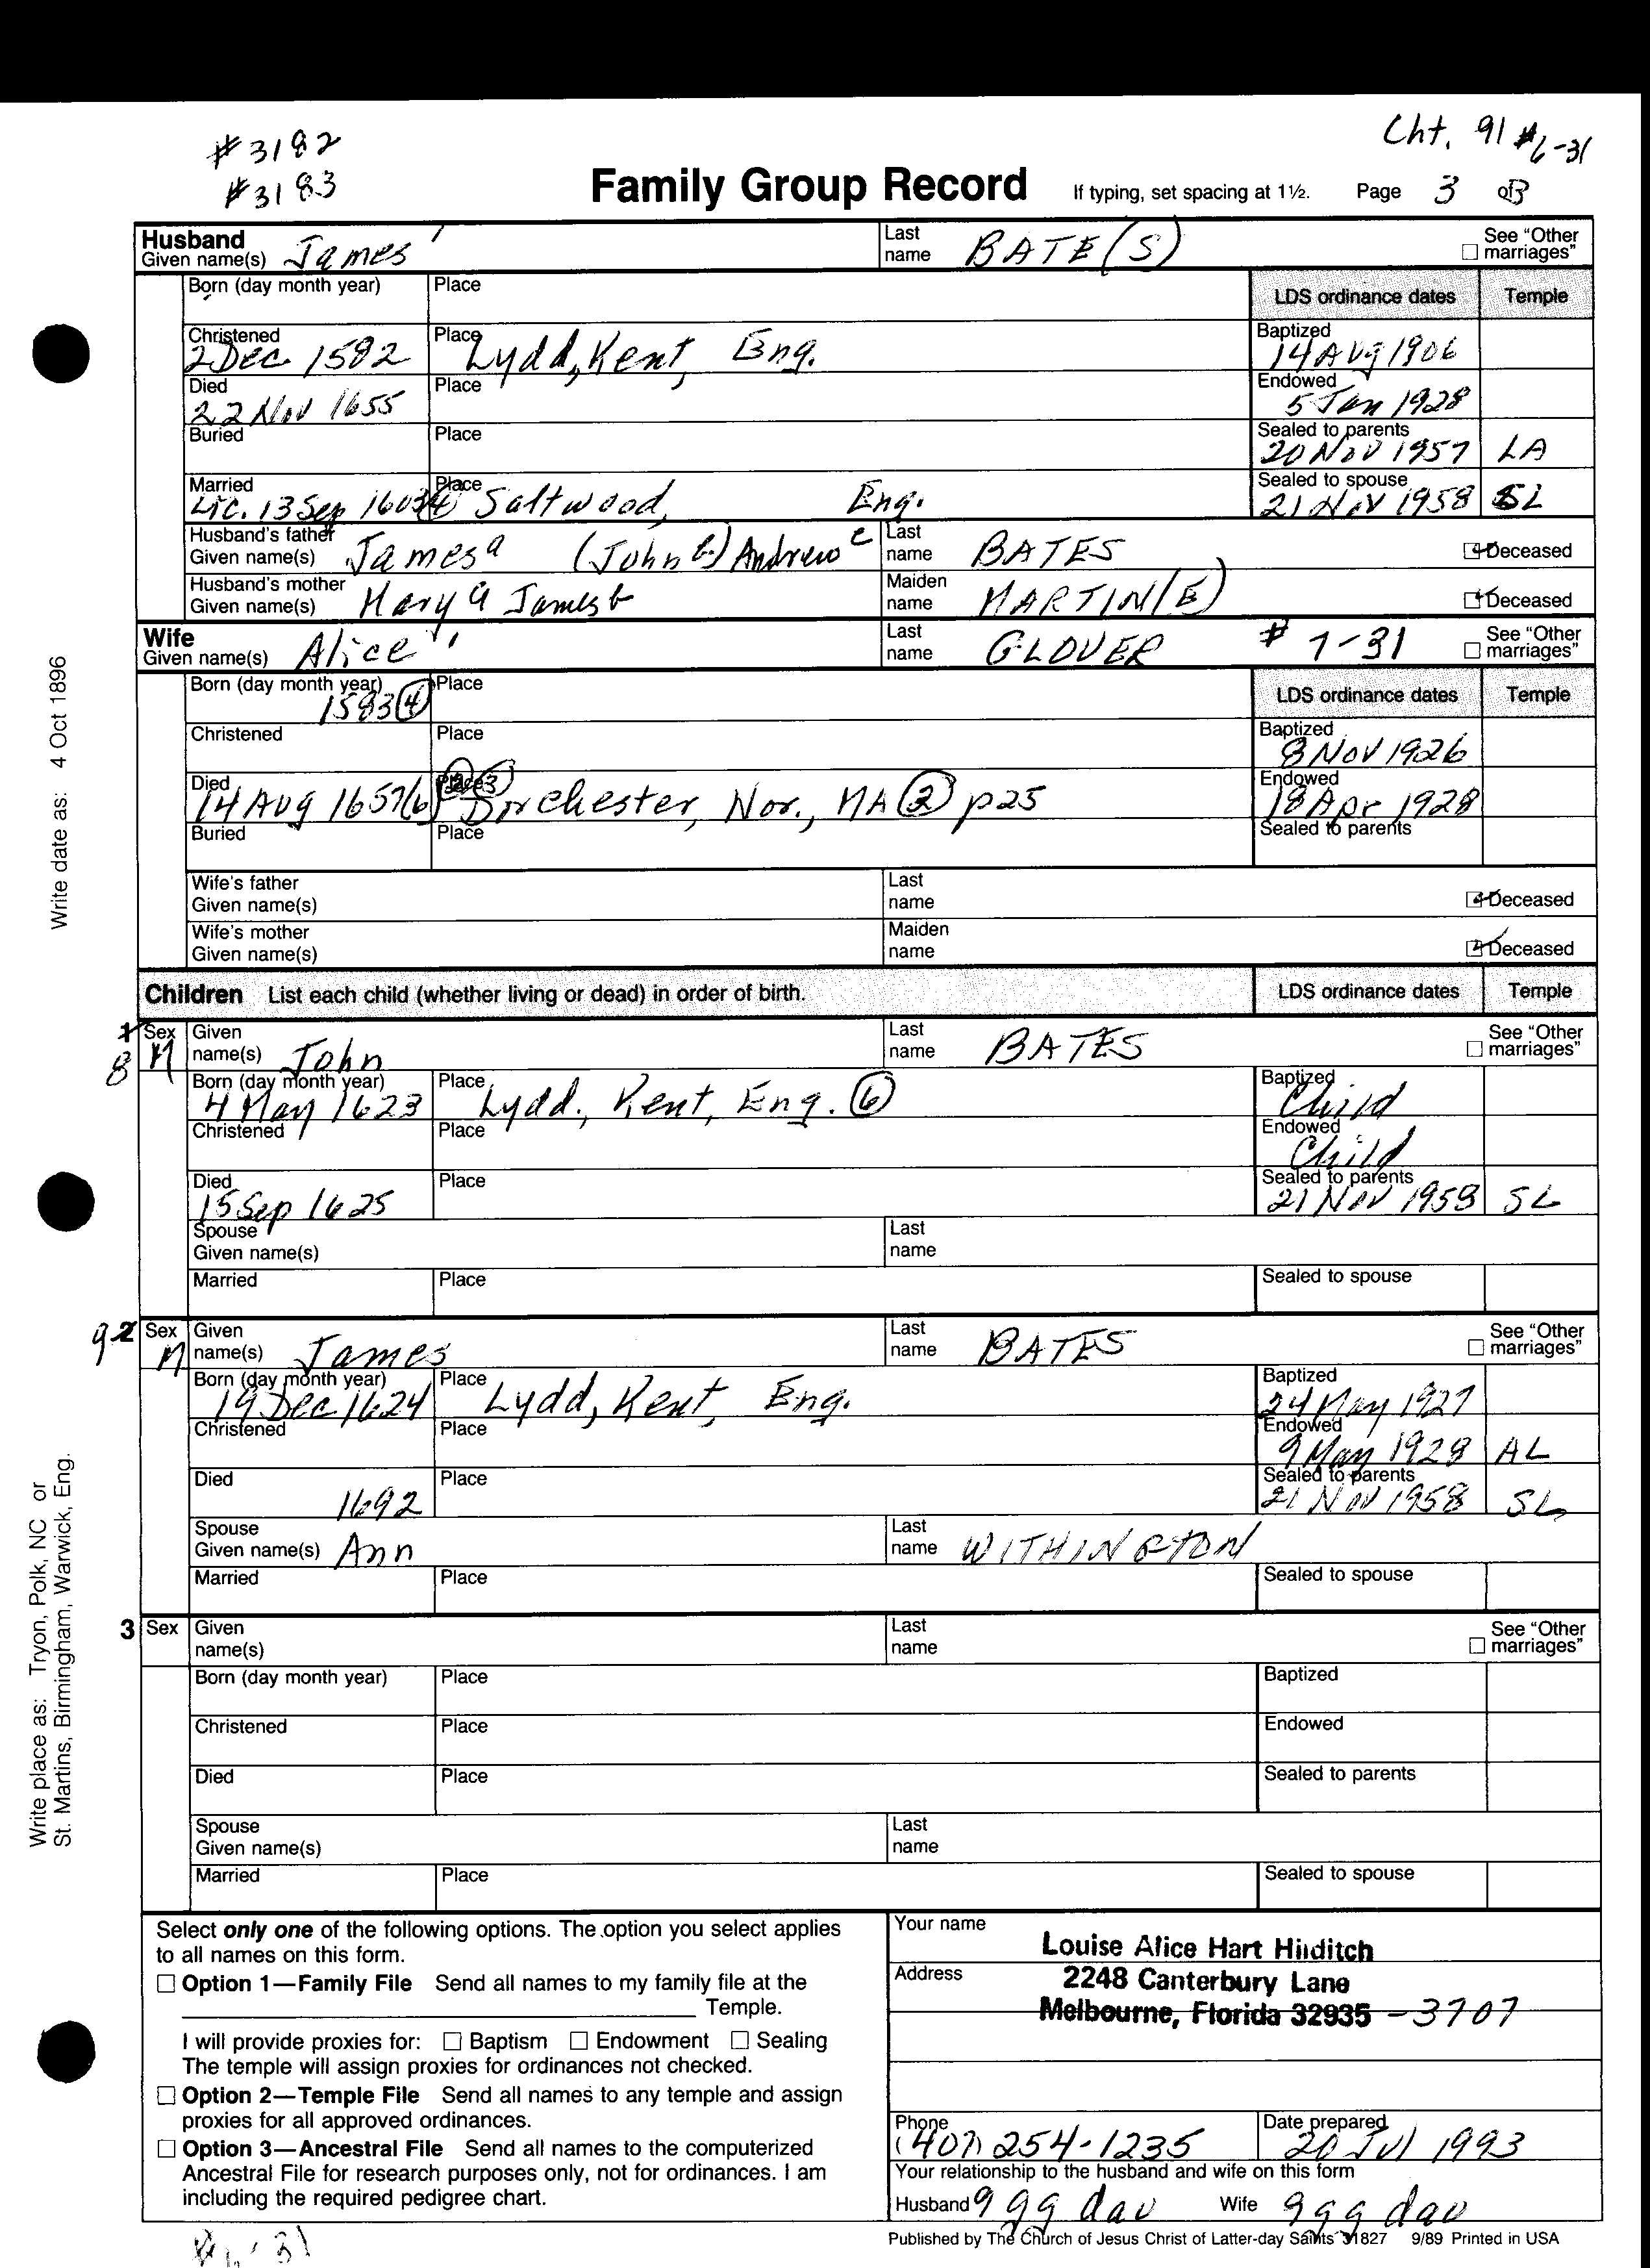 #3182
#3183
Cht. 91 #6-31
Family Group Record If typing, set spacing at 1½. Page 3 of 3
Husband
Given name(s) James
Last name BATE(S)
See "Other marriages"
Born (day month year)
Place
LDS ordinance dates Temple
Christened 2 Dec 1582
Place Lydd, Kent, Eng.
Baptized 14 Aug 1906
Died 22 Nov 1655
Place
Endowed 5 Jan 1928
Buried
Place
Sealed to parents 20 Nov 1957 LA
Married Lic. 13 Sep 1603 (4)
Place Saltwood, Eng.
Sealed to spouse 21 Nov 1958 SL
Husband's father
Given name(s) James a (John b) Andrew c
Last name BATES
Deceased
Husband's mother
Given name(s) Mary a James b
Maiden name MARTIN(E)
Deceased
Wife
Given name(s) Alice
Last name GLOVER # 7-31
See "Other marriages"
Born (day month year) 1583 (4)
Place
LDS ordinance dates Temple
Christened
Place
Baptized 8 Nov 1926
Died 14 Aug 1657 (6)
Place Dorchester, Nor., MA (2) p25
Endowed 18 Apr 1928
Buried
Place
Sealed to parents
Wife's father
Given name(s)
Last name
Deceased
Wife's mother
Given name(s)
Maiden name
Deceased
Children List each child (whether living or dead) in order of birth.
LDS ordinance dates Temple
1 8
Sex M
Given name(s) John
Last name BATES
See "Other marriages"
Born (day month year) 4 May 1623
Place Lydd., Kent, Eng. (6)
Baptized Child
Christened
Place
Endowed Child
Died 15 Sep 1625
Place
Sealed to parents 21 Nov 1958 SL
Spouse
Given name(s)
Last name
Married
Place
Sealed to spouse
9 2
Sex M
Given name(s) James
Last name BATES
See "Other marriages"
Born (day month year) 19 Dec 1624
Place Lydd, Kent, Eng.
Baptized 24 May 1927
Christened
Place
Endowed 9 May 1928 AL
Died 1692
Place
Sealed to parents 21 Nov 1958 SL
Spouse
Given name(s) Ann
Last name WITHINGTON
Married
Place
Sealed to spouse
3
Sex
Given name(s)
Last name
See "Other marriages"
Born (day month year)
Place
Baptized
Christened
Place
Endowed
Died
Place
Sealed to parents
Spouse
Given name(s)
Last name
Married
Place
Sealed to spouse
Select only one of the following options. The option you select applies
to all names on this form.
Option 1—Family File Send all names to my family file at the
Temple.
I will provide proxies for: Baptism Endowment Sealing
The temple will assign proxies for ordinances not checked.
Option 2—Temple File Send all names to any temple and assign
proxies for all approved ordinances.
Option 3—Ancestral File Send all names to the computerized
Ancestral File for research purposes only, not for ordinances. I am
including the required pedigree chart.
Your name
Louise Alice Hart Hilditch
Address
2248 Canterbury Lane
Melbourne, Florida 32935 -3707
Phone (407) 254-1235
Date prepared 20 Jul 1993
Your relationship to the husband and wife on this form
Husband 9 gg dau Wife 9 gg dau
Published by The Church of Jesus Christ of Latter-day Saints 31827 9/89 Printed in USA
Write date as: 4 Oct 1896
Write place as: Tryon, Polk, NC or
St. Martins, Birmingham, Warwick, Eng.